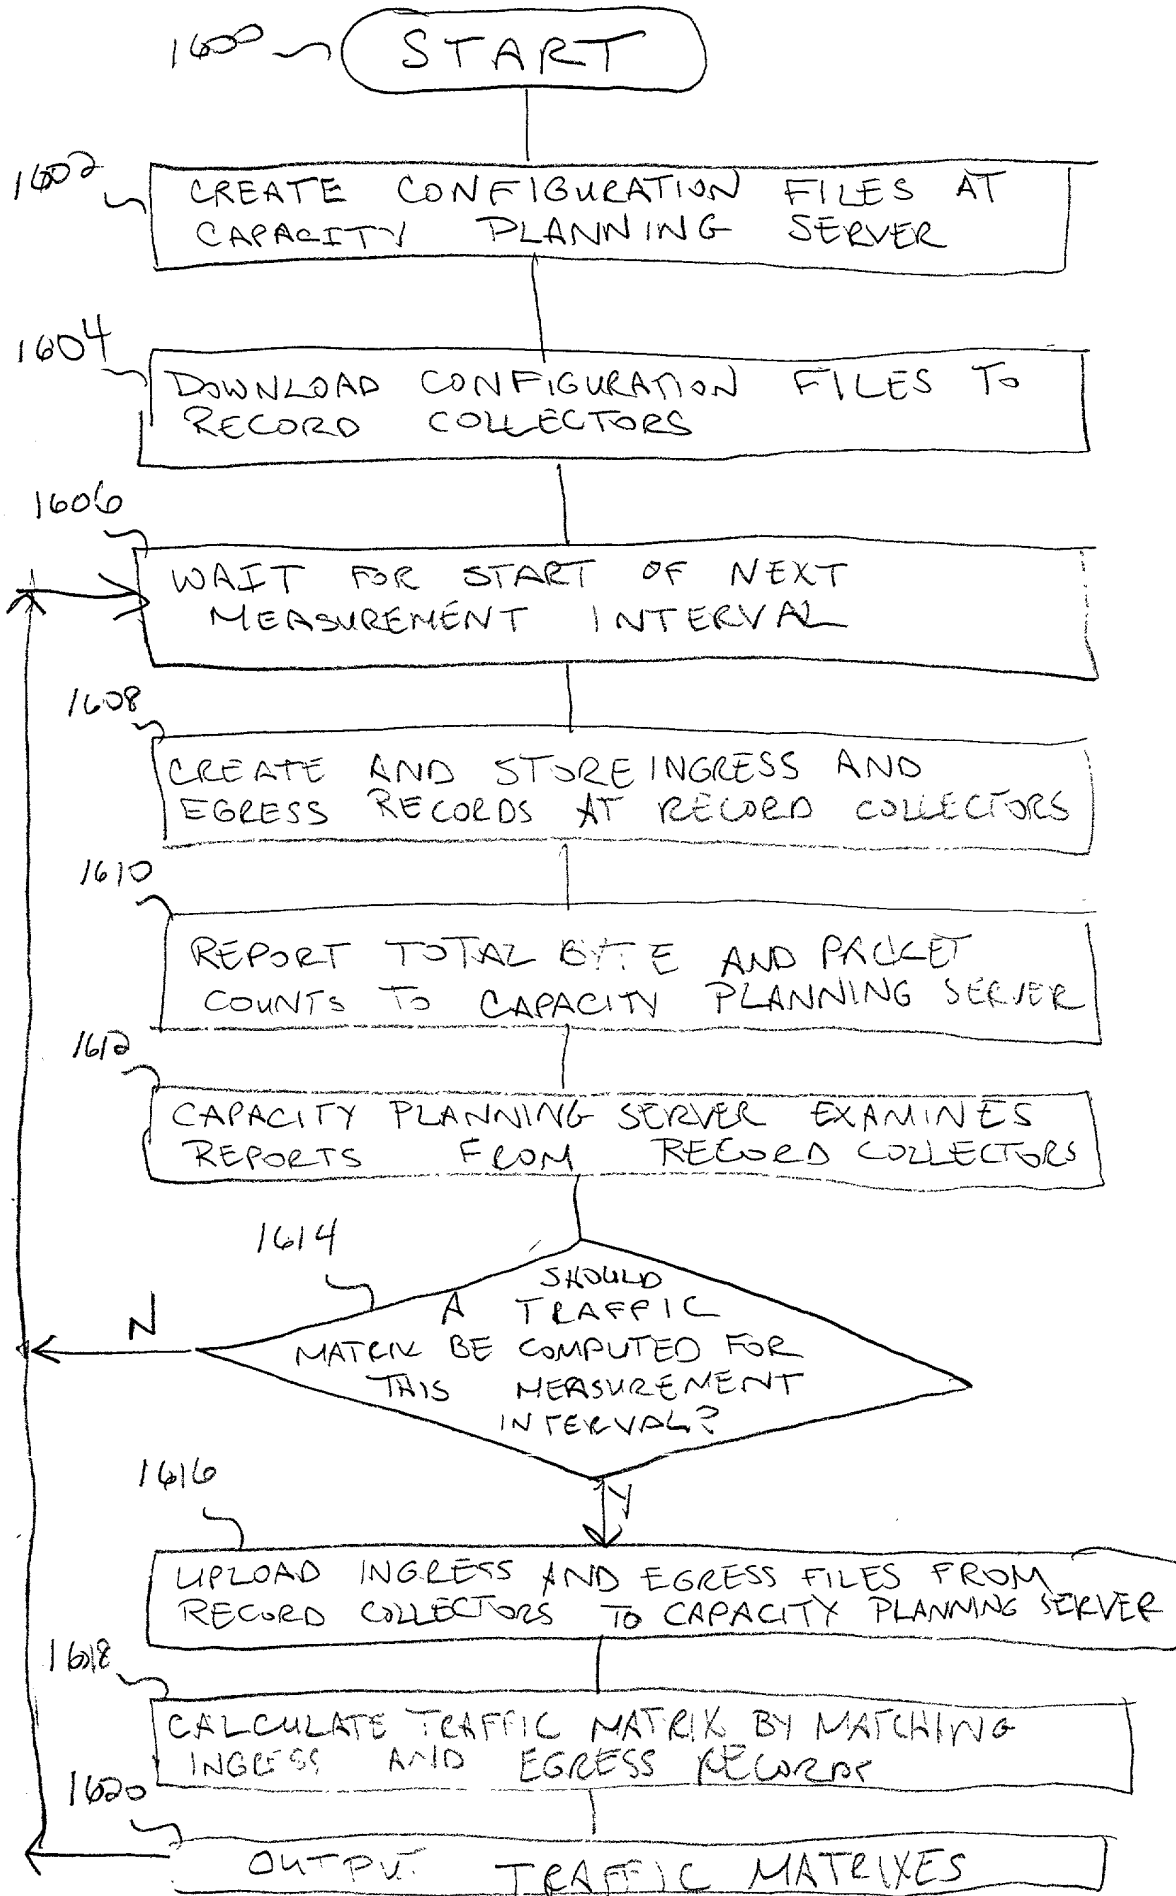 1600
START
1602
CREATE CONFIGURATION FILES AT
CAPACITY PLANNING SERVER
1604
DOWNLOAD CONFIGURATION FILES TO
RECORD COLLECTORS
1606
WAIT FOR START OF NEXT
MEASUREMENT INTERVAL
1608
CREATE AND STORE INGRESS AND
EGRESS RECORDS AT RECORD COLLECTORS
1610
REPORT TOTAL BYTE AND PACKET
COUNTS TO CAPACITY PLANNING SERVER
1612
CAPACITY PLANNING SERVER EXAMINES
REPORTS FROM RECORD COLLECTORS
1614
SHOULD
A TRAFFIC
MATRIX BE COMPUTED FOR
THIS MEASUREMENT
INTERVAL?
N
Y
1616
UPLOAD INGRESS AND EGRESS FILES FROM
RECORD COLLECTORS TO CAPACITY PLANNING SERVER
1618
CALCULATE TRAFFIC MATRIX BY MATCHING
INGRESS AND EGRESS RECORDS
1620
OUTPUT TRAFFIC MATRIXES